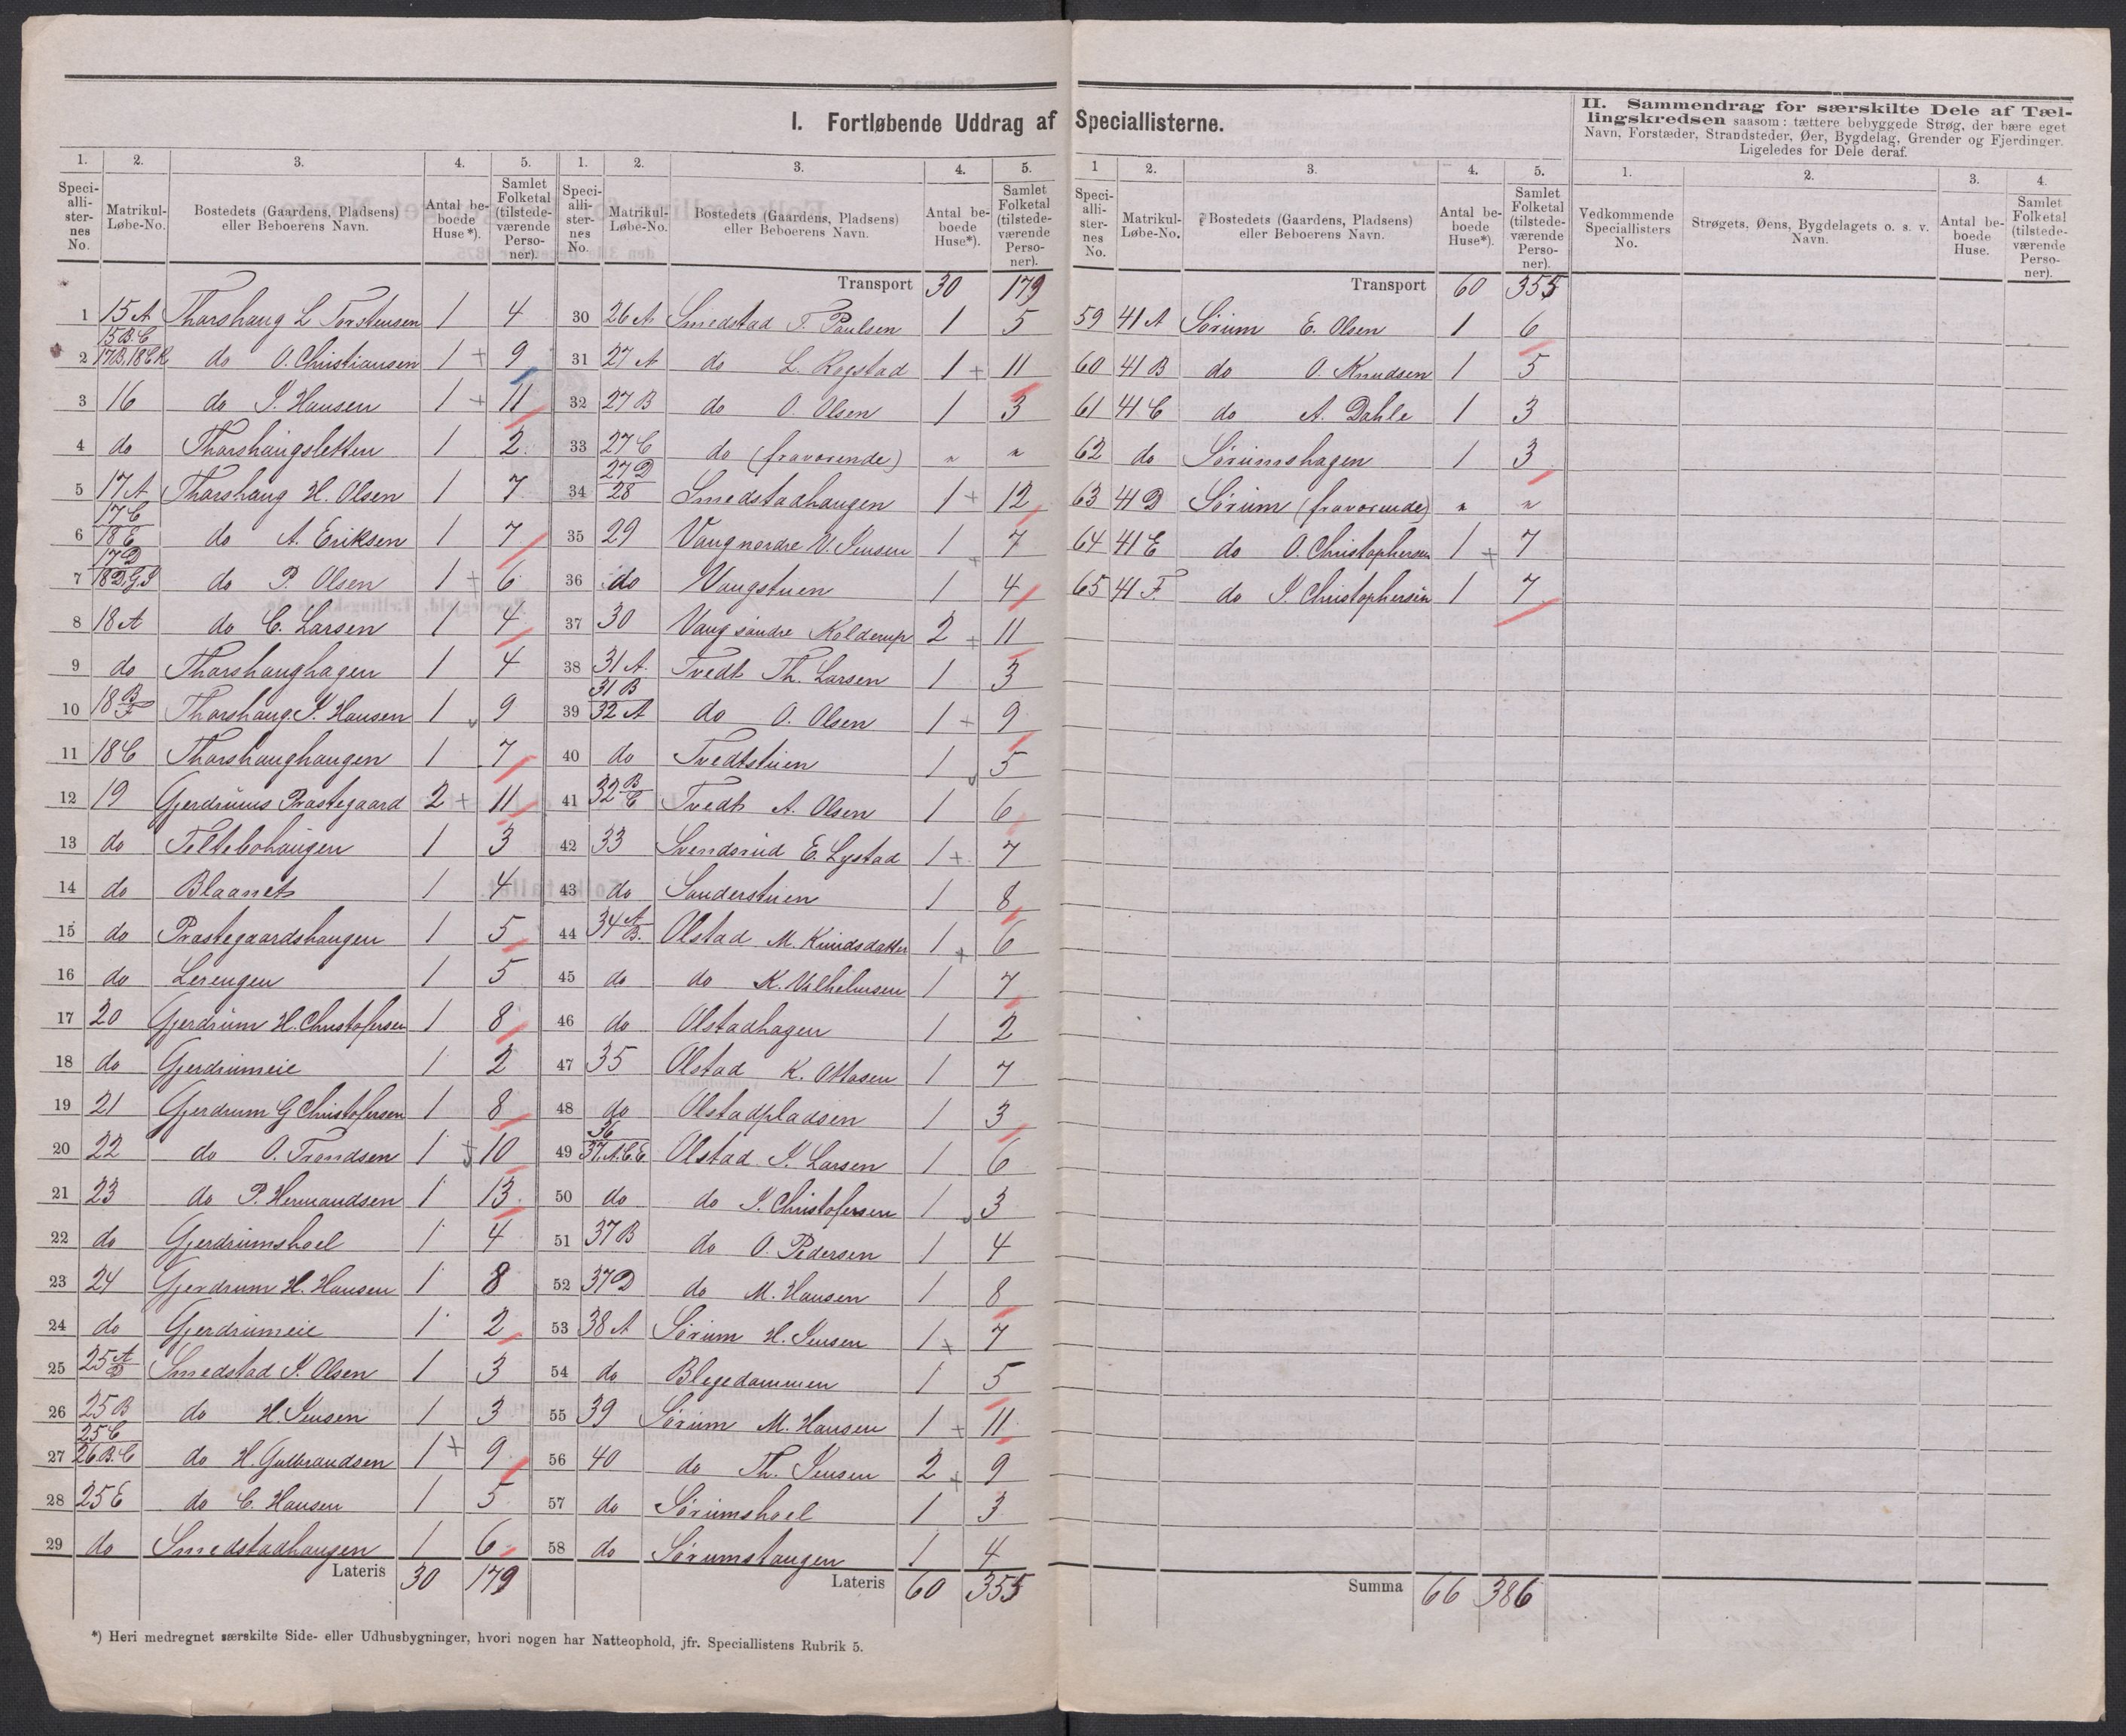 I. Fortløbende Uddrag af Speciallisterne.
II. Sammendrag for særskilte Dele af Tæl-
lingskredsen saasom: tættere bebyggede Strøg, der bære eget
Navn, Forstæder, Strandsteder, Øer, Bygdelag, Grender og Fjerdinger.
Ligeledes for Dele deraf.
1. 2. 3. 4. 5.
Speci-alli-ster-nes No. Matrikul-Løbe-No. Bostedets (Gaardens, Pladsens) eller Beboerens Navn. Antal be-boede Huse*). Samlet Folketal (tilstede-værende Perso-ner).
1 15 A Thorshaug L Torstensen 1 4
2 15 B.C 17B,18CK do O. Christiansen 1 + 9
3 16 do J. Hansen 1 + 11
4 do Thorshaugsletten 1 2
5 17 A Thorshaug H. Olsen 1 7
6 17 C 18 E do A. Eriksen 1 7
7 17 D 18 D.G.J do P. Olsen 1 + 6
8 18 A do C. Larsen 1 4
9 do Thorshaughagen 1 4
10 18 B F Thorshaug J. Hansen 1 9
11 18 C Thorshaughaugen 1 7
12 19 Gjerdrums Præstegaard 2 + 11
13 do Teltebohaugen 1 3
14 do Blaanet 1 4
15 do Præstegaardshaugen 1 5
16 do Lerengen 1 5
17 20 Gjerdrum H. Christofersen 1 8
18 do Gjerdrumeie 1 2
19 21 Gjerdrum G Christofersen 1 8
20 22 do O. Trondsen 1 + 10
21 23 do P. Hermandsen 1 13
22 do Gjerdrumshoel 1 4
23 24 Gjerdrum H. Hansen 1 8
24 do Gjerdrumeie 1 2
25 25 A D Smedstad J. Olsen 1 3
26 25 B do H. Jensen 1 3
27 25 C 26 B.C do H. Gulbrandsen 1 + 9
28 25 E do C. Hansen 1 5
29 do Smedstadhaugen 1 6
Lateris 30 179
1. 2. 3. 4. 5.
Speci-alli-ster-nes No. Matrikul-Løbe-No. Bostedets (Gaardens, Pladsens) eller Beboerens Navn. Antal be-boede Huse*). Samlet Folketal (tilstede-værende Perso-ner).
Transport 30 179
30 26 A Smedstad T. Paulsen 1 5
31 27 A do L. Rogstad 1 + 11
32 27 B do O. Olsen 1 3
33 27 C do (fraværende) " "
34 27 D 28 Smedstadhaugen 1 + 12
35 29 Vaug nordre N. Jensen 1 + 7
36 do Vaugstuen 1 4
37 30 Vaug søndre Kolderup 2 + 11
38 31 A. Tvedt Th. Larsen 1 3
39 31 B 32 A do O. Olsen 1 + 9
40 do Tvedtstuen 1 5
41 32 B C Tvedt A. Olsen 1 6
42 33 Svendsrud E. Lystad 1 + 7
43 do Sanderstuen 1 8
44 34 A B. Olstad M. Knudsdatter 1 + 6
45 do do K. Vilhelmsen 1 7
46 do Olstadhagen 1 2
47 35 Olstad K. Ottosen 1 7
48 do Olstadpladsen 1 3
49 36 37.A.C.E Olstad J. Larsen 1 6
50 do do J. Christofersen 1 3
51 37 B do O. Pedersen 1 4
52 37 D do M. Hansen 1 8
53 38 A Sørum H. Jensen 1 + 7
54 do Blegedammen 1 5
55 39 Sørum M. Hansen 1 + 11
56 40 do Th. Jensen 2 + 9
57 do Sørumshoel 1 3
58 do Sørumshaugen 1 4
Lateris 60 355
1 2. 3. 4. 5.
Speci-alli-ster-nes No. Matrikul-Løbe-No. Bostedets (Gaardens, Pladsens) eller Beboerens Navn. Antal be-boede Huse*). Samlet Folketal (tilstede-værende Perso-ner).
Transport 60 355
59 41 A Sørum E. Olsen 1 6
60 41 B do O. Knudsen 1 5
61 41 C do A. Dahle 1 3
62 do Sørumshagen 1 3
63 41 D Sørum (fraværende) " "
64 41 E do O. Christophersen 1 + 7
65 41 F. do J. Christophersen 1 7
Summa 66 386
1. 2. 3. 4.
Vedkommende Speciallisters No. Strøgets, Øens, Bygdelagets o. s. v. Navn. Antal be-boede Huse. Samlet Folketal (tilstede-værende Perso-ner).
*) Heri medregnet særskilte Side- eller Udhusbygninger, hvori nogen har Natteophold, jfr. Speciallistens Rubrik 5.